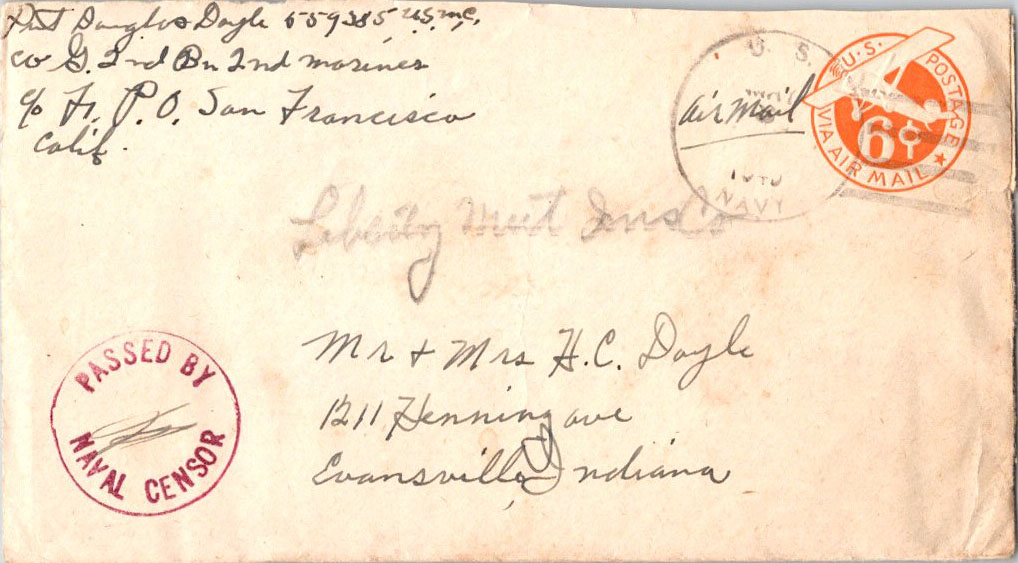 Pvt Douglas Doyle 559385 U.S.M.C.
Co G. 2nd Bn 2nd Marines
c/o Ft. P.O. San Francisco
Calif.
U. S.
air mail
NAVY
U.S. POSTAGE
6¢
VIA AIR MAIL
Mr + Mrs H.C. Doyle
1211 Henning ave
Evansville, Indiana
PASSED BY
NAVAL CENSOR